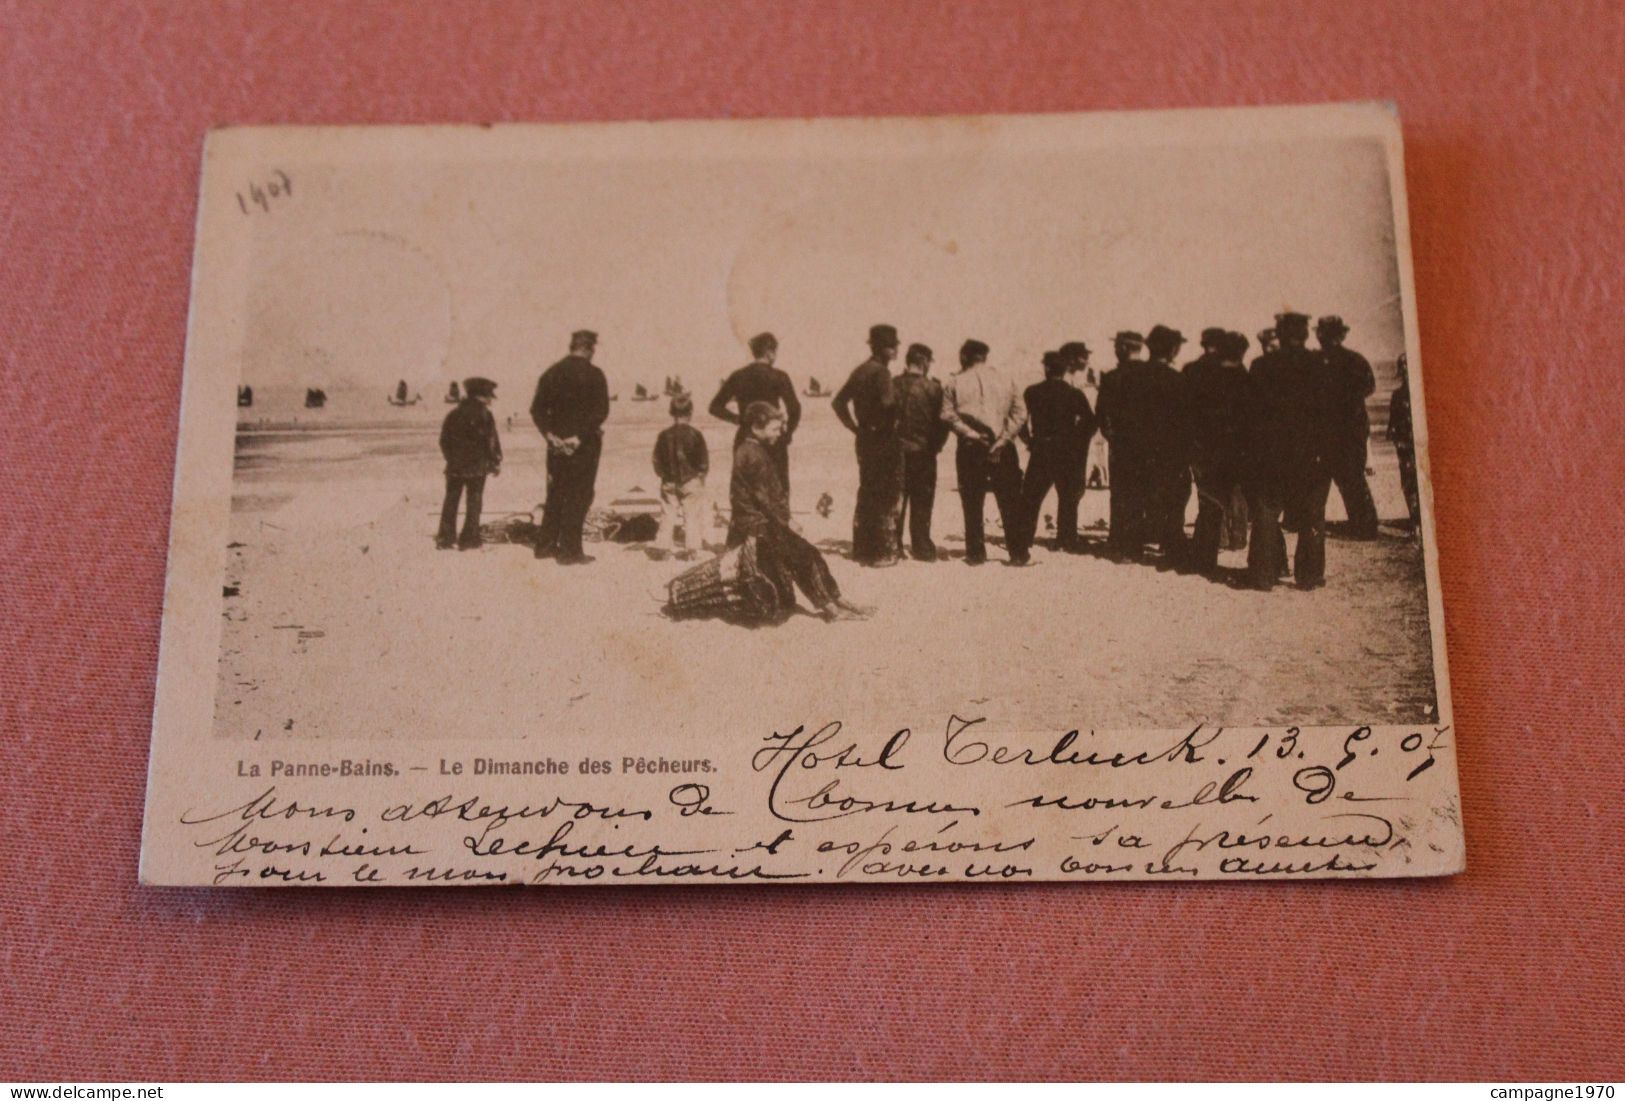 1907
La Panne-Bains. — Le Dimanche des Pêcheurs.
Hotel Terlinck. 13. 9. 07
Nous attendons de bonnes nouvelles de
Monsieur et espérons sa présence,
pour le mois prochain. avec nos amitiés
www.delcampe.net
campagne1970